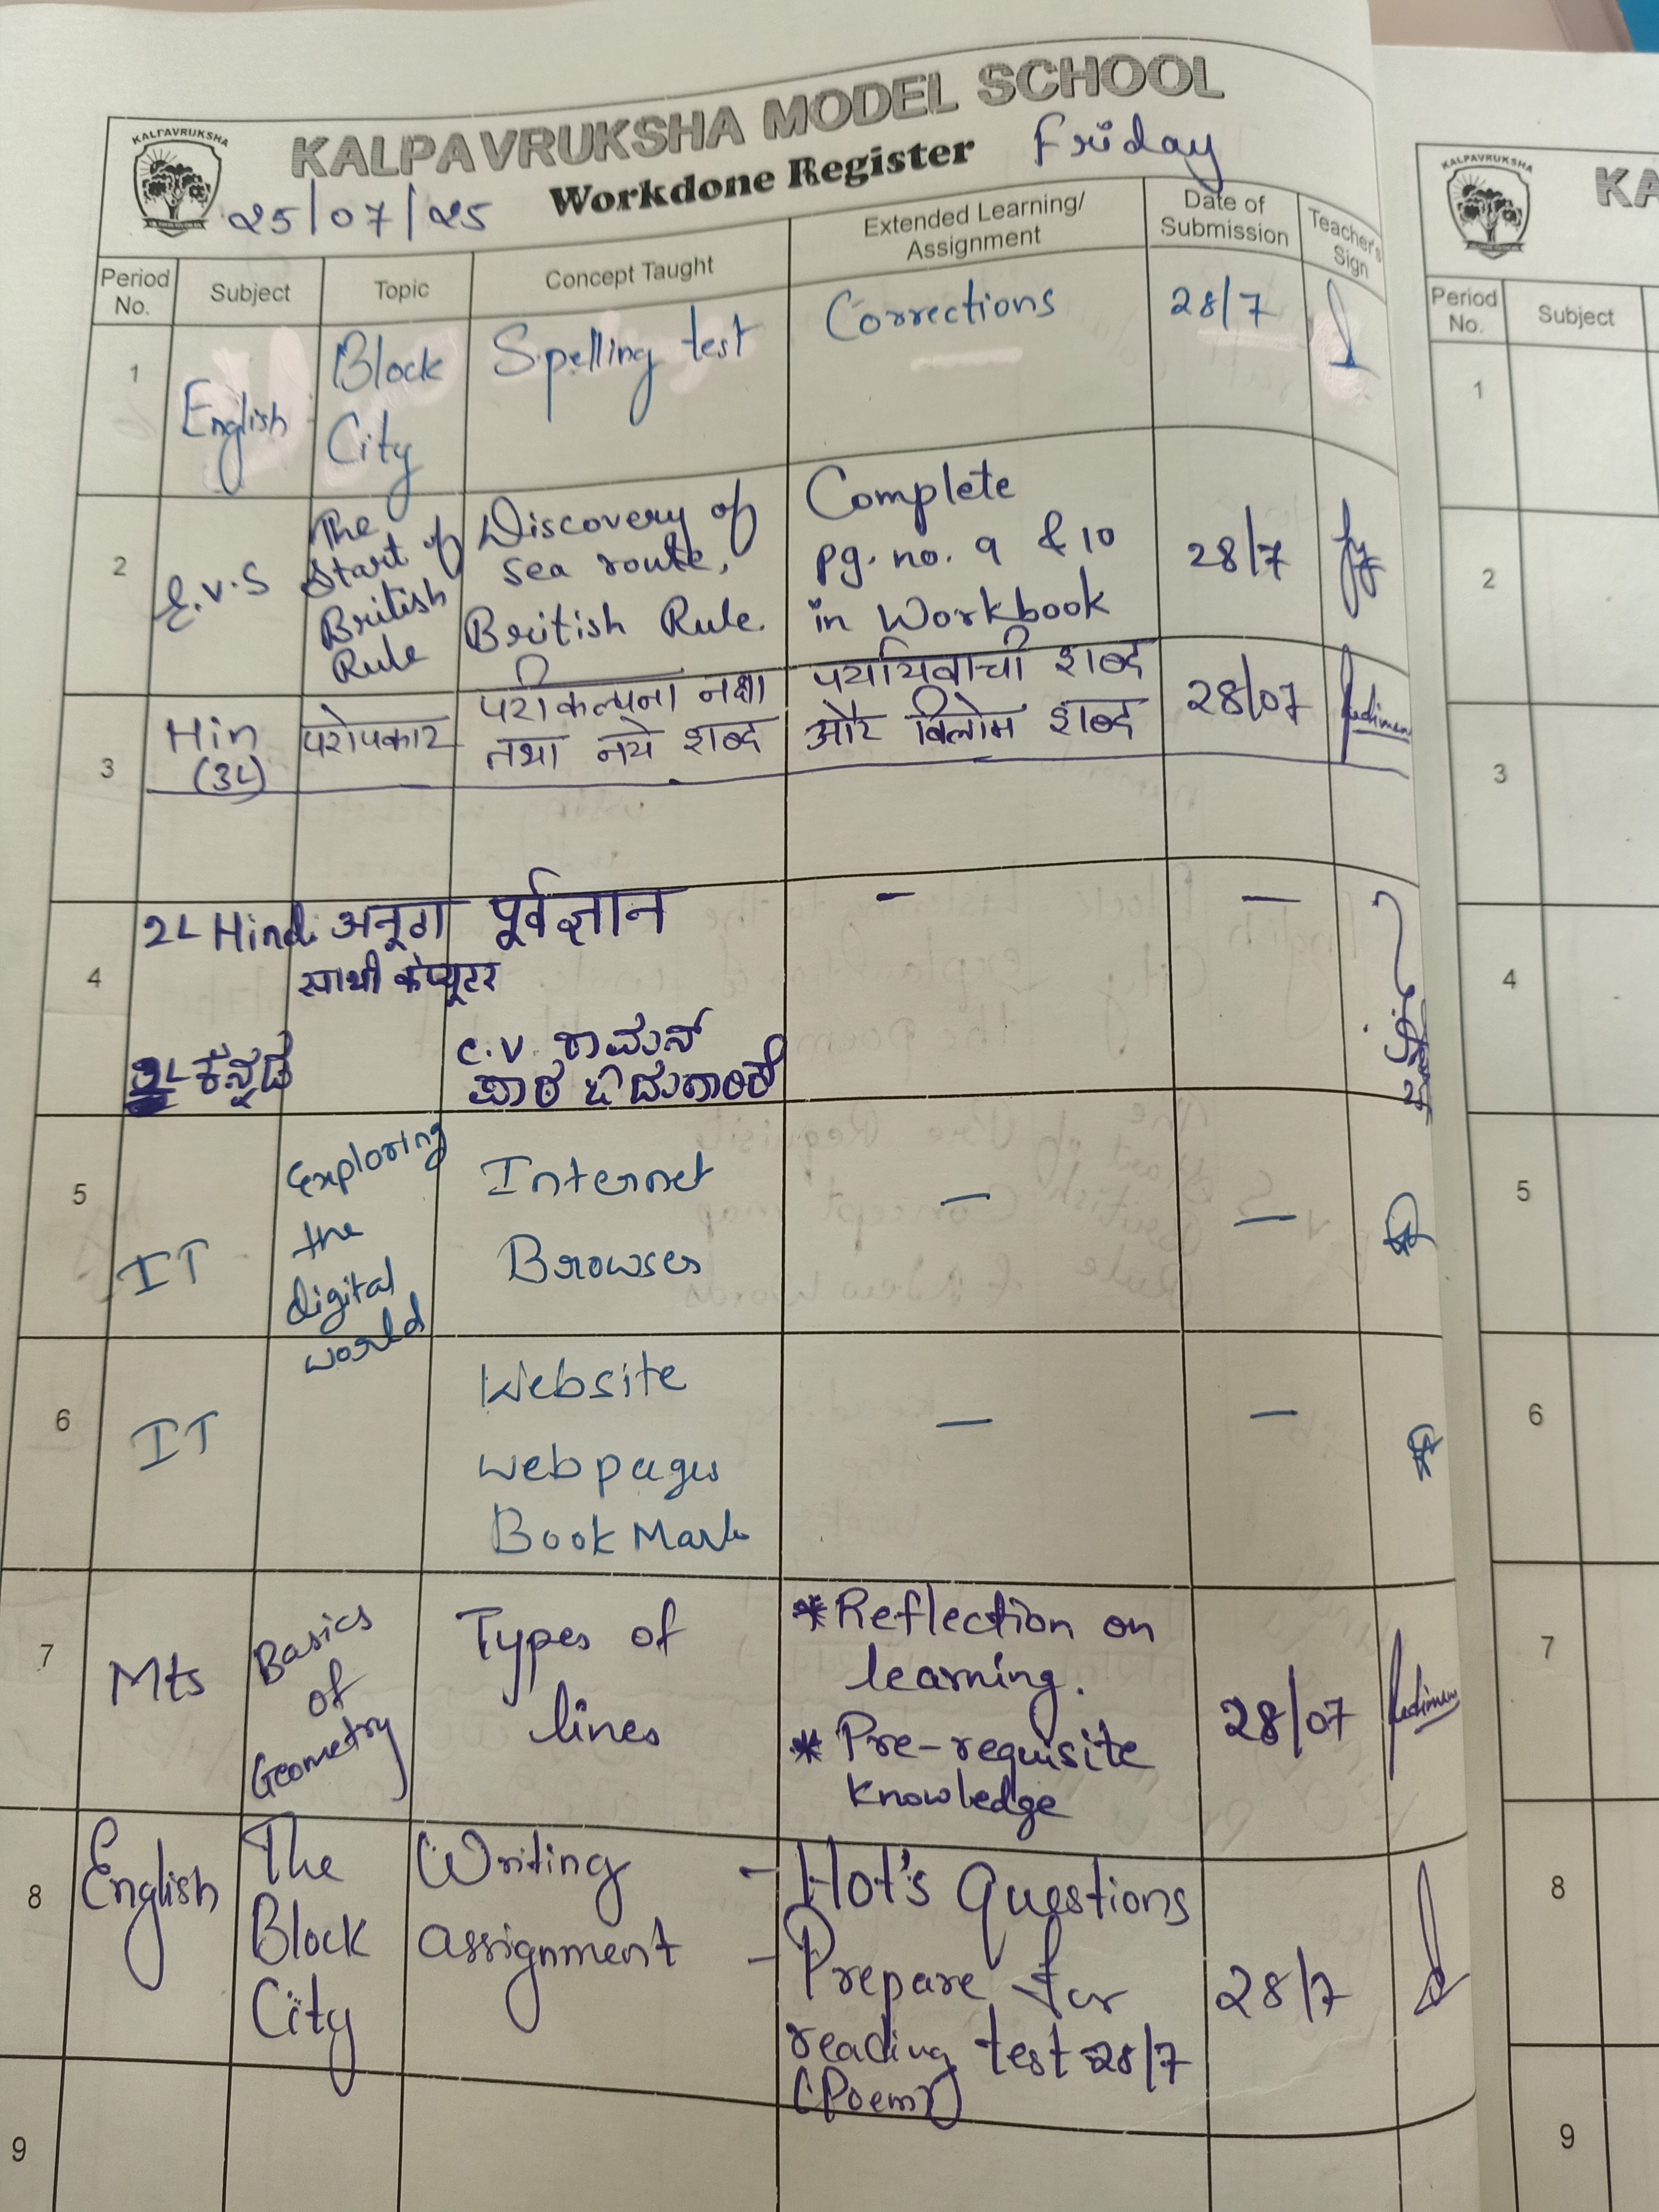 KALPAVRUKSHA
KALPAVRUKSHA MODEL SCHOOL
Workdone Register
Friday
25/07/25
Period No.
Subject
Topic
Concept Taught
Extended Learning/ Assignment
Date of Submission
Teacher's Sign
1
English
Block
City
Spelling test
Corrections
28/7
2
E.V.S
The
Start of
British
Rule
Discovery of
sea route,
British Rule.
Complete
pg. no. 9 & 10
in Workbook
28/7
3
Hin
(3L)
परोपकार
परीकल्पना नक्षा
तथा नये शब्द
पर्यायवाची शब्द
और विलोम शब्द
28/07
4
2L Hindi
अनूठा
साथी कंप्यूटर
पूर्वज्ञान
-
-
2L ಕನ್ನಡ
C.V. ರಾಮನ್
ಪಾಠ
5
IT
Exploring
the
digital
world
Internet
Browses
-
-
6
IT
Website
webpages
BookMark
-
-
7
Mts
Basics
of
Geometry
Types of
lines
*Reflection on
learning.
* Pre-requisite
knowledge
28/07
8
English
The
Block
City
Writing
assignment
- Hot's Questions
- Prepare for
reading test 28/7
(Poem)
28/7
9
KALPAVRUKSHA
KA
Period No.
Subject
1
2
3
4
5
6
7
8
9